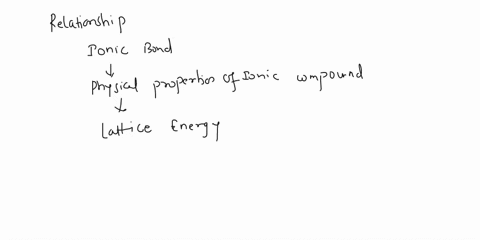 Relationship
Ionic Bond
↓
Physical properties of Ionic compound
↓
Lattice Energy